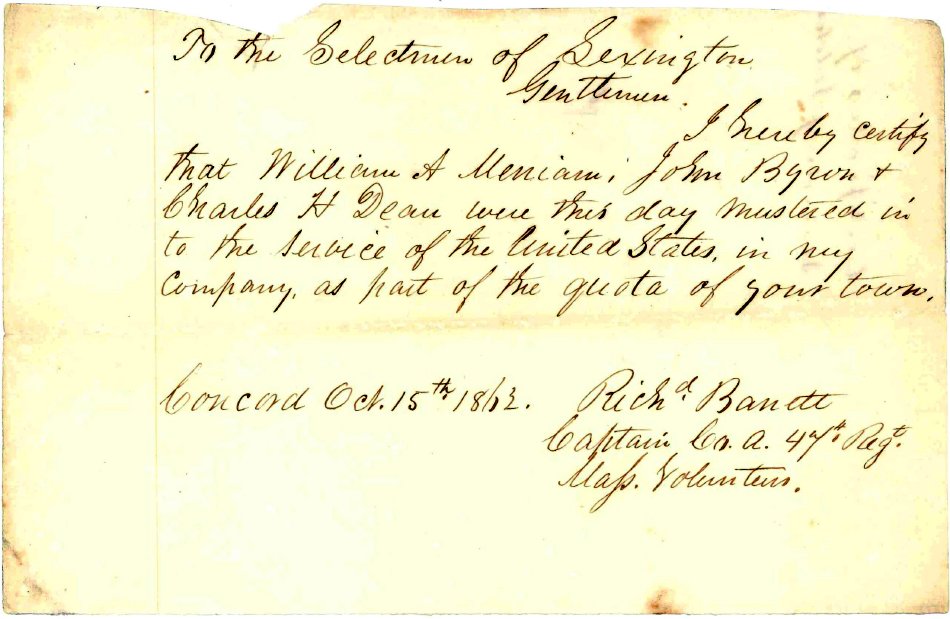 To the Selectmen of Lexington
Gentlemen.
I hereby certify
that William A Merriam, John Byron &
Charles H Dean were this day mustered in
to the service of the United States, in my
Company, as part of the quota of your town.
Concord Oct. 15th 1862. Richd Barrett
Captain Co. A. 47th Regt.
Mass. Volunteers.